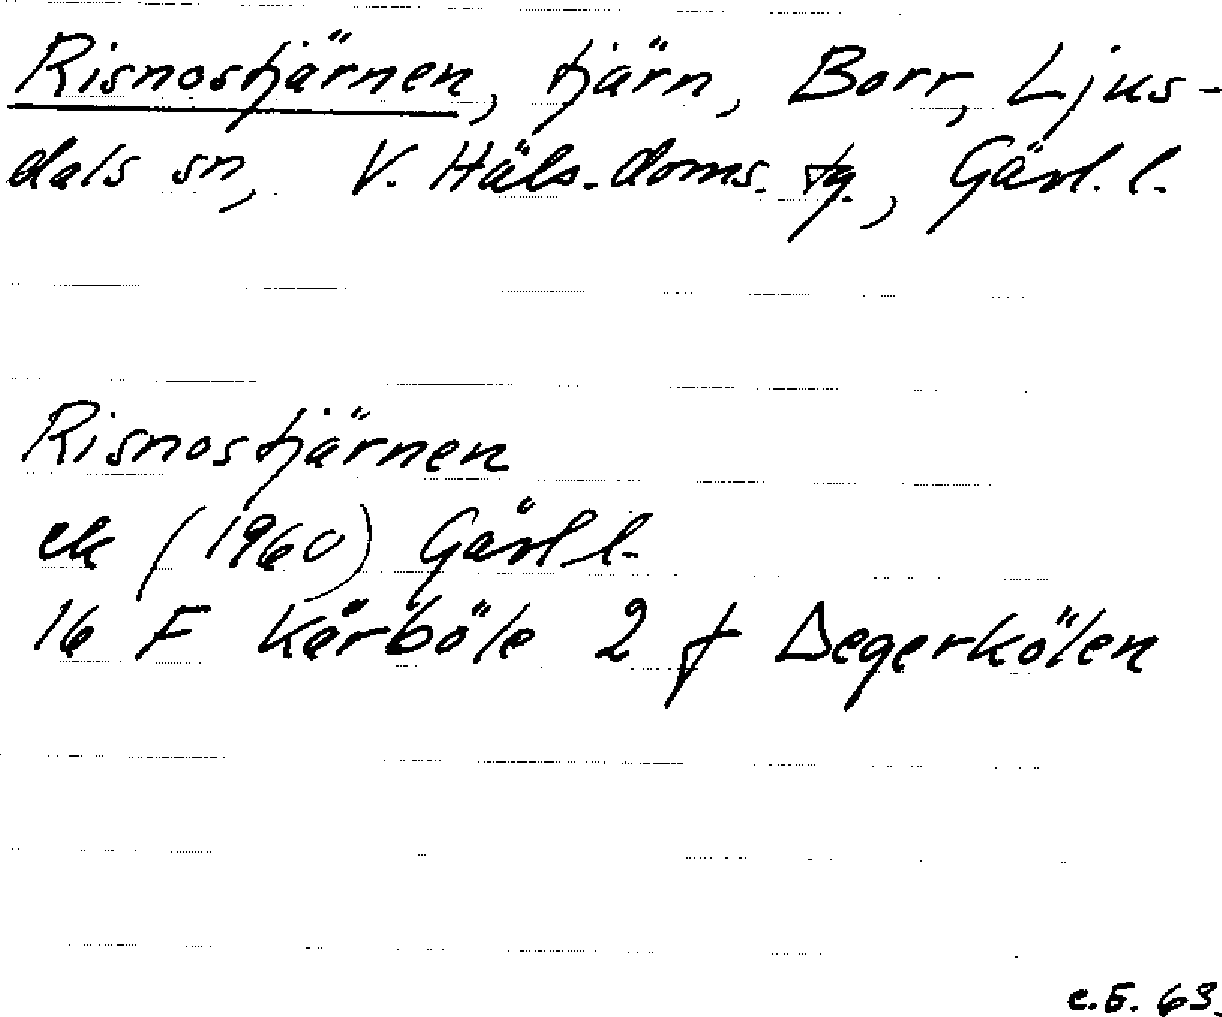 Risnostjärnen, tjärn, Borr, Ljus-
dals sn, V. Häls. doms. tg., Gävl. l.
Risnostjärnen
ek (1960) Gävl l.
16 F Kårböle 2 f Degerkölen
C.G. 63.